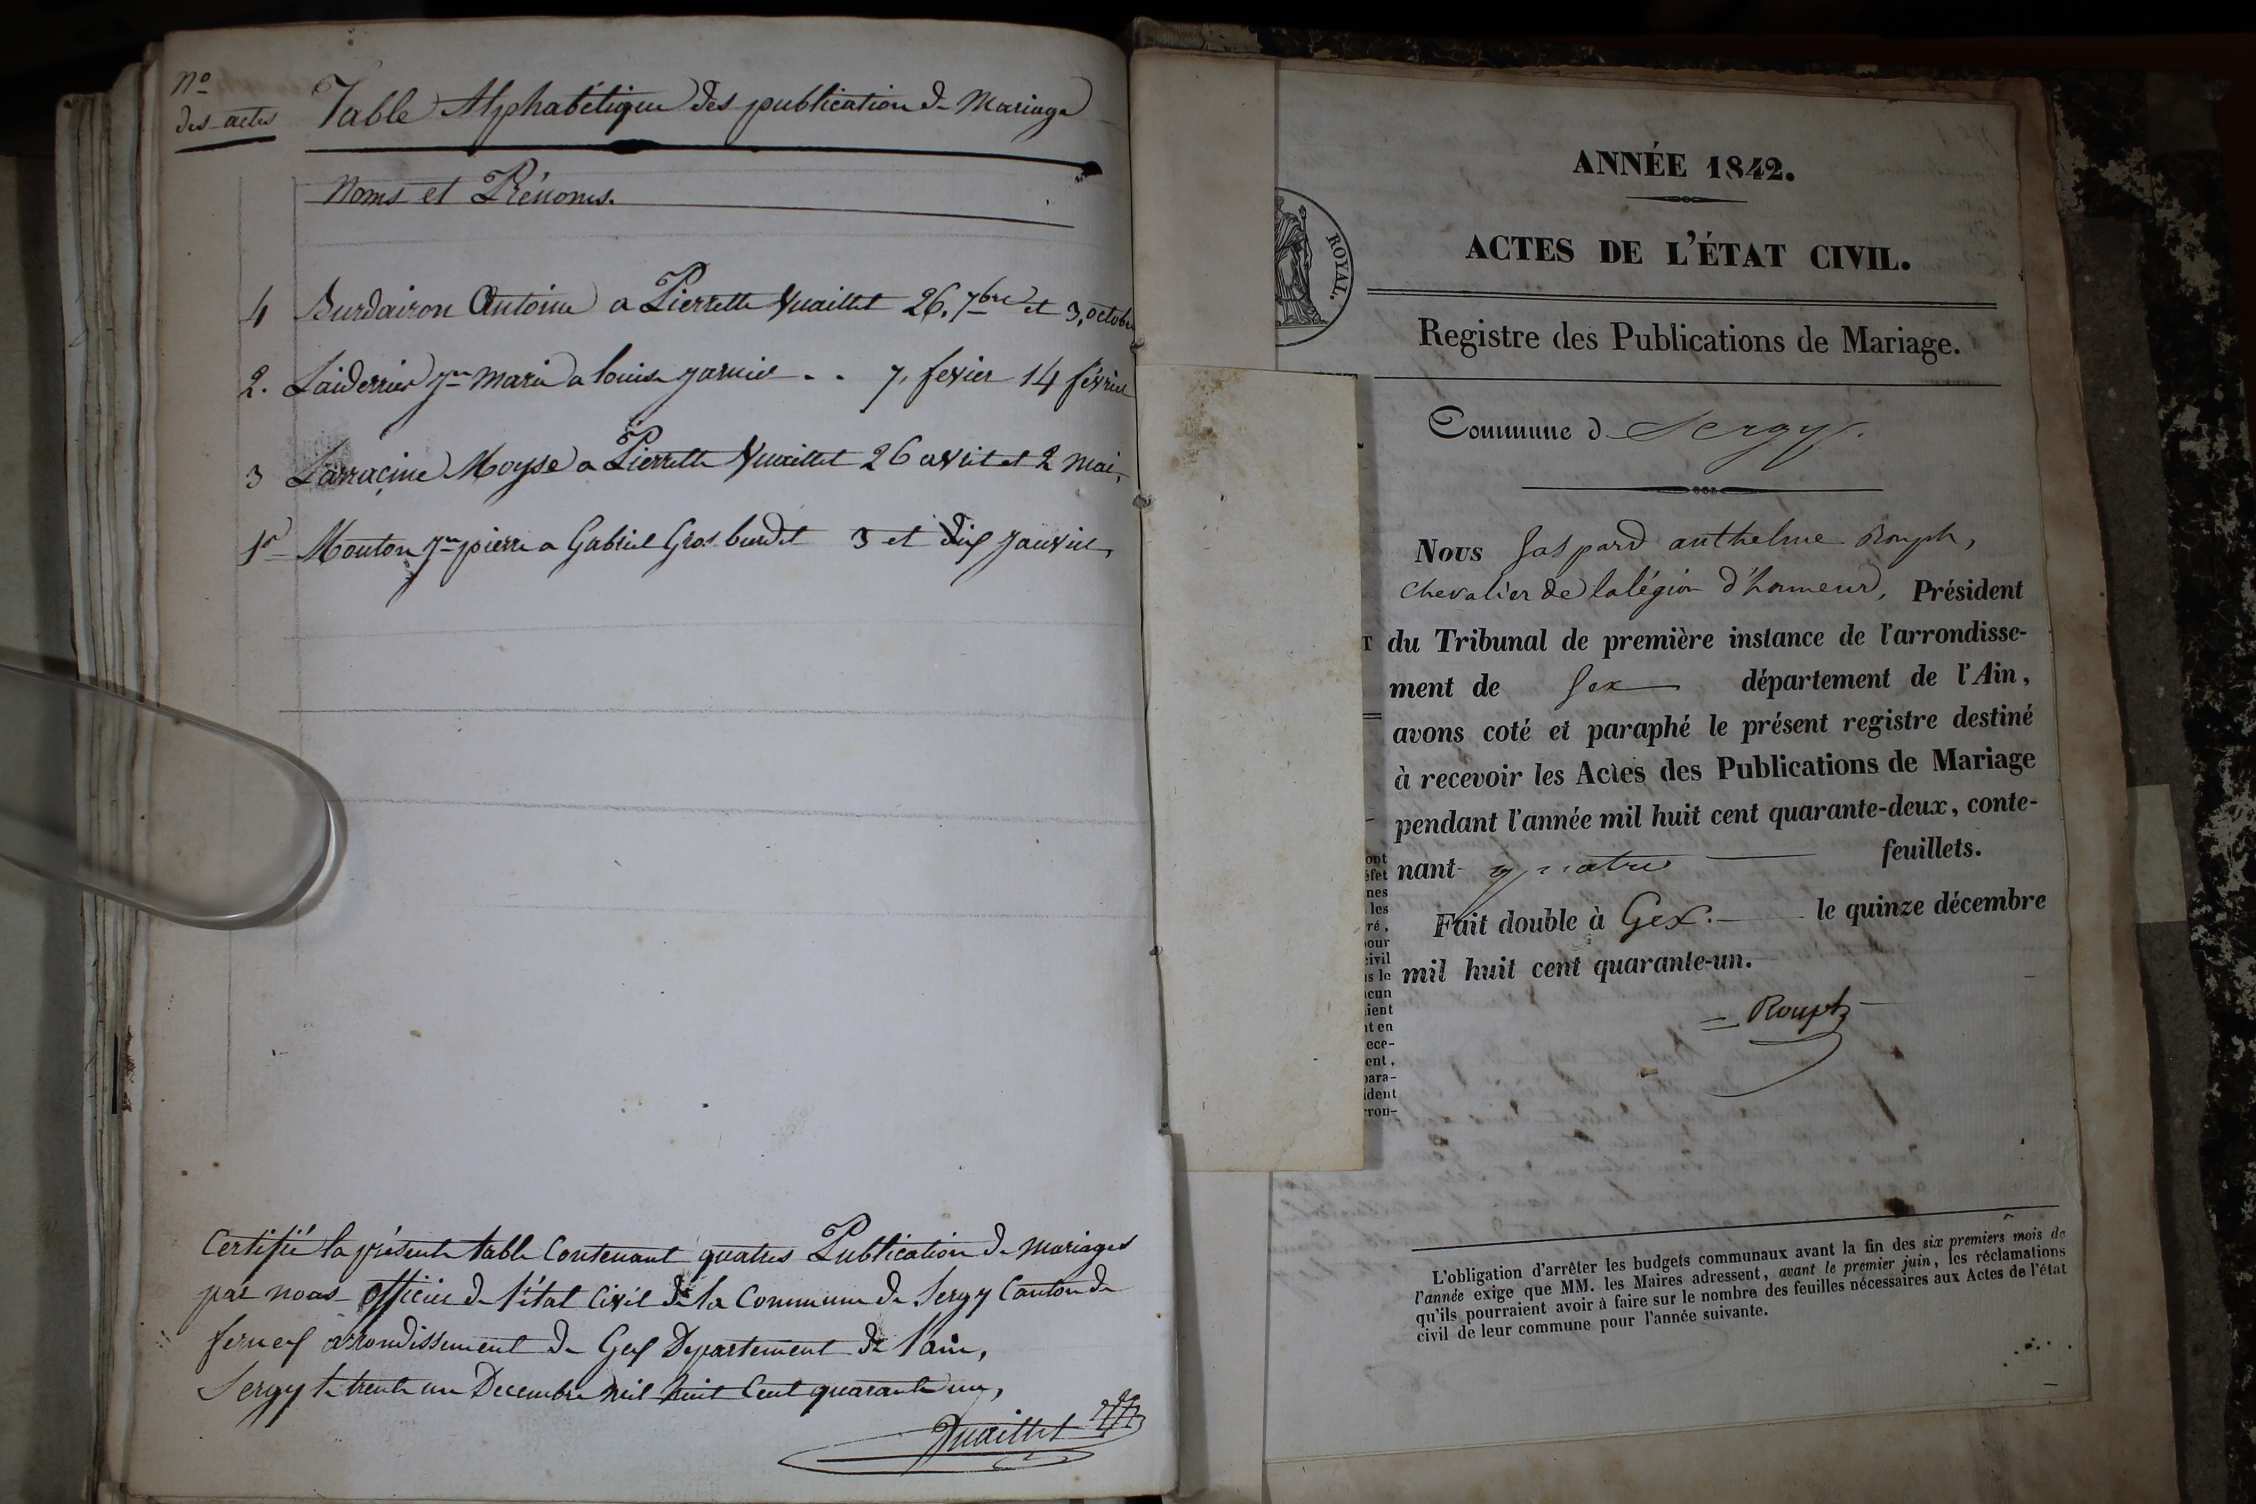 No
des actes
Table Alphabétique des publication de Mariage
Noms et Prénoms.
4 Burdairon Antoine a Pierrette Vuaillet 26. 7bre et 3, octobre
2. Laiderrier Jn Marie a louise Jarnier . . 7, fevier 14 février
3 Larracine Moyse a Pierrette Vuaillet 26 avril et 2 mai,
1er Mouton Jn pierre a Gabriel Gros burdet 3 et dix Janvier,
Certifié la présente table Contenant quatres Publication de Mariages
par nous officier de l'état Civil de la Commune de Sergy Canton de
fernex arrondissement de Gex Departement de l'ain,
Sergy le trente un Decembre mil huit Cent quarante un,
Vuaillet
ROYAL.
ANNÉE 1842.
ACTES DE L'ÉTAT CIVIL.
Registre des Publications de Mariage.
Commune d Sergy.
Nous Gaspard anthelme Rouph,
chevalier de la légion d'honneur, Président
du Tribunal de première instance de l'arrondisse-
ment de Gex département de l'Ain,
avons coté et paraphé le présent registre destiné
à recevoir les Actes des Publications de Mariage
pendant l'année mil huit cent quarante-deux, conte-
nant quatre feuillets.
Fait double à Gex. le quinze décembre
mil huit cent quarante-un.
Rouph
L'obligation d'arrêter les budgets communaux avant la fin des six premiers mois de
l'année exige que MM. les Maires adressent, avant le premier juin, les réclamations
qu'ils pourraient avoir à faire sur le nombre des feuilles nécessaires aux Actes de l'état
civil de leur commune pour l'année suivante.